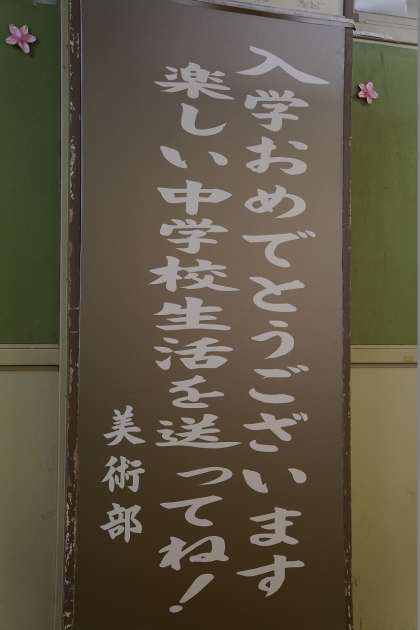 入学おめでとうございます
楽しい中学校生活を送ってね!
美術部